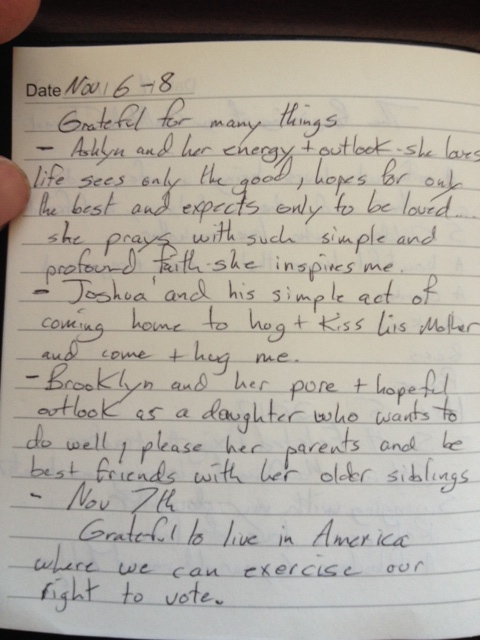 Date Nov 6 - 8
Grateful for many things
- Ashlyn and her energy + outlook - she loves
life sees only the good, hopes for only
the best and expects only to be loved....
she prays with such simple and
profound faith - she inspires me.
- Joshua and his simple act of
coming home to hug + kiss his Mother
and come + hug me.
- Brooklyn and her pure + hopeful
outlook as a daughter who wants to
do well, please her parents and be
best friends with her older siblings
- Nov 7th
Grateful to live in America
where we can exercise our
right to vote.